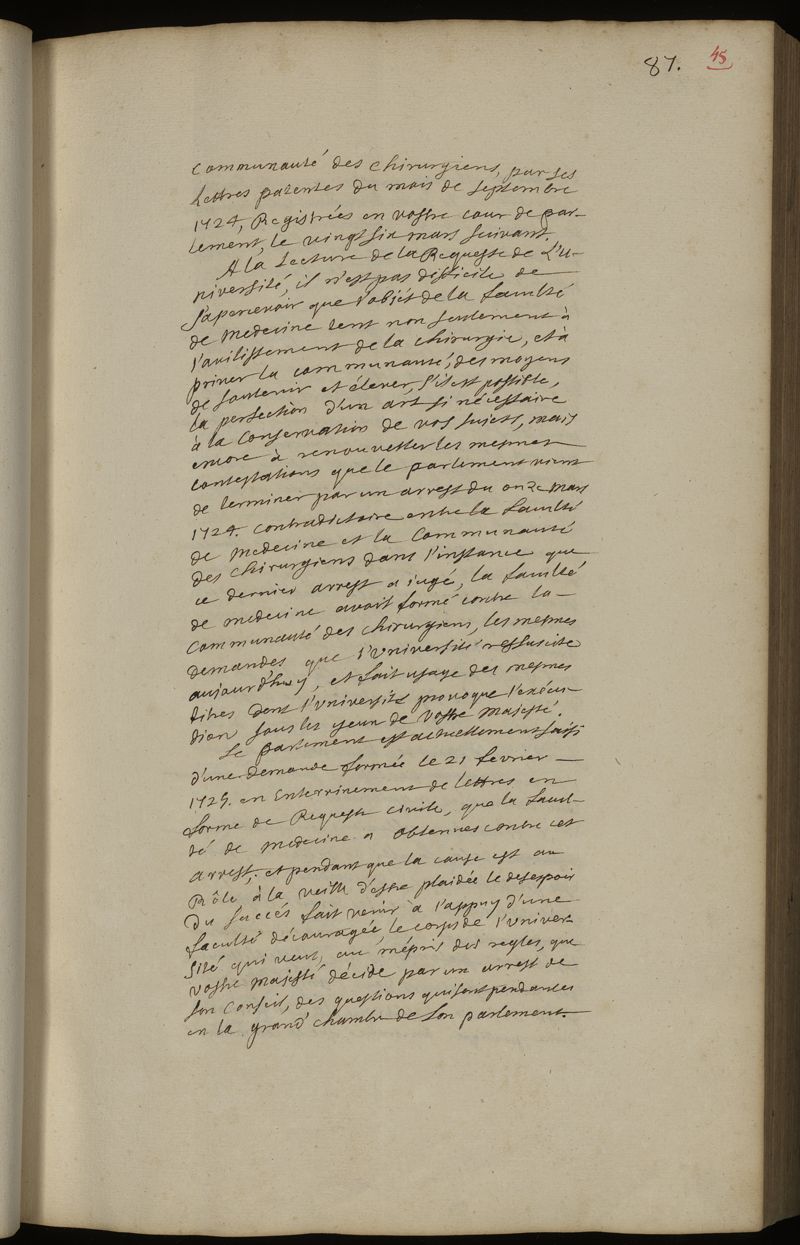 87. 45
Communauté des Chirurgiens, par ses
Lettres patentes du mois de septembre
1724, Registrées en vostre cour de par-
lement, le vingt six mars suivant.
A la Lecture de la Requeste de L'U-
niversité, il n'est pas difficile de
s'apercevoir que l'objét de la faculté
de Medecine tent non seulement à
l'avilissement de la chirurgie, et à
priver la communauté, des moyens
de soutenir et élever, s'il est possible,
la perfection d'un art si nécessaire
à la Conservation de vos sujets, mais
encore à renouveller les mesmes
contestations que le parlement vient
de terminer par un arrest du onze mars
1724. contradictoire entre la faculté
de Medecine et la Communauté
des chirurgiens dans l'instance que
ce dernier arrest a jugé, la faculté
de medecine avoit formé contre la
Communauté des chirurgiens, les mesmes
demandes que l'Université ressuscite
aujourd'huy, et fait usage des mesmes
titres dont l'Université provoque l'exécu-
tion sous les yeux de Vostre Majesté.
Le parlement est actuellement saisi
d'une demande formée le 21 fevrier
1725. en Enterrinement de lettres en
forme de Requeste civile, que la facul-
té de medecine a obtenues contre cet
arrest, et pendant que la cause est au
Rôle à la veille d'estre plaidée le desespoir
du succés fait venir à l'appuy d'une
faculté découragée le corps de l'Univer-
sité qui veut, au mépris des regles, que
vostre Majesté décide par un arrest de
son Conseil, des questions qui sont pendantes
en la grand' chambre de son parlement.